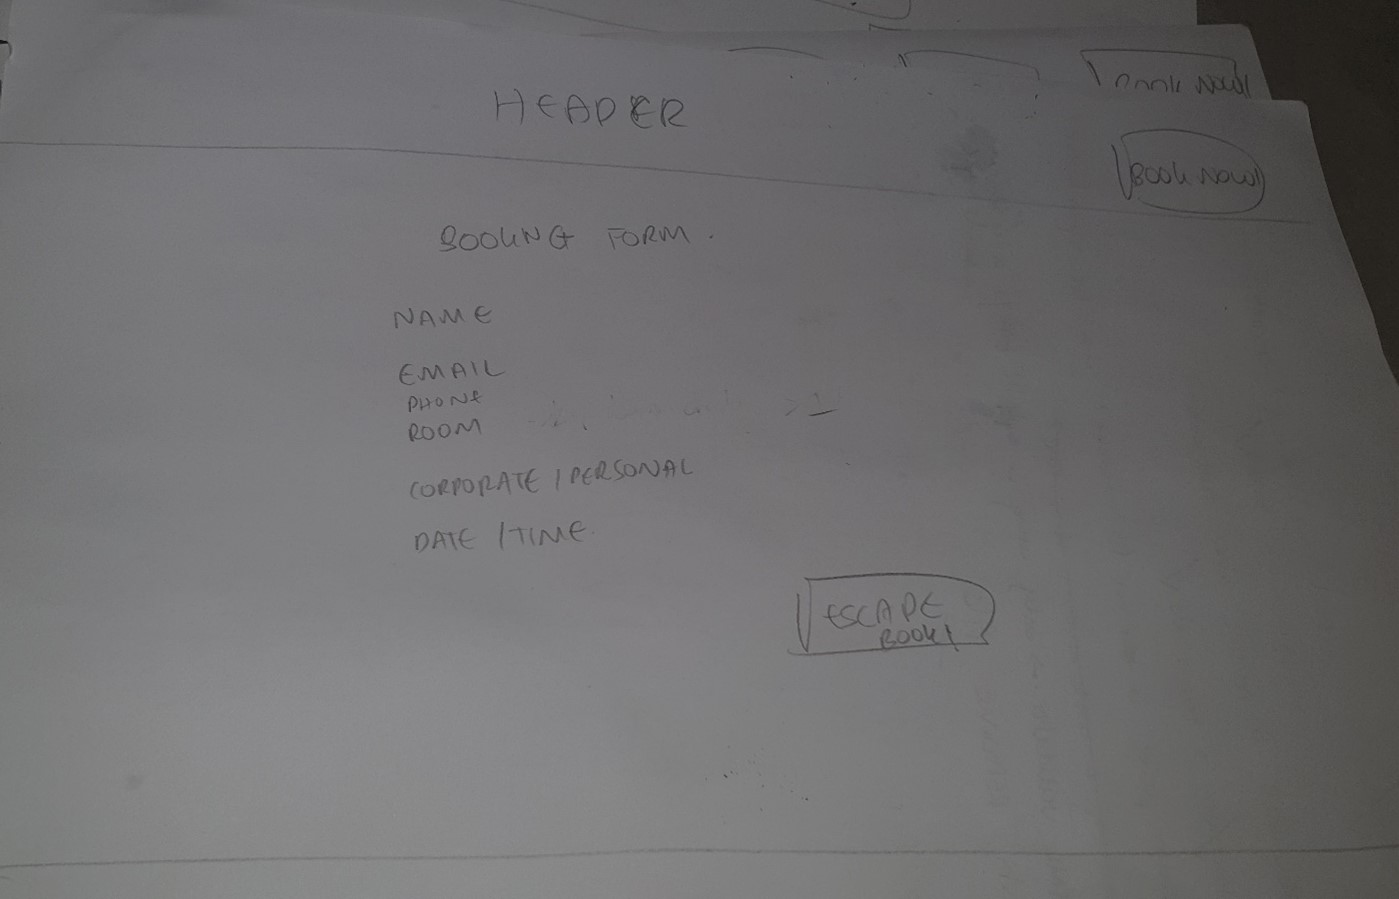 BOOK NOW
HEADER
BOOK NOW
BOOKING FORM.
NAME
EMAIL
PHONE
ROOM
CORPORATE / PERSONAL
DATE / TIME.
ESCAPE
BOOK!